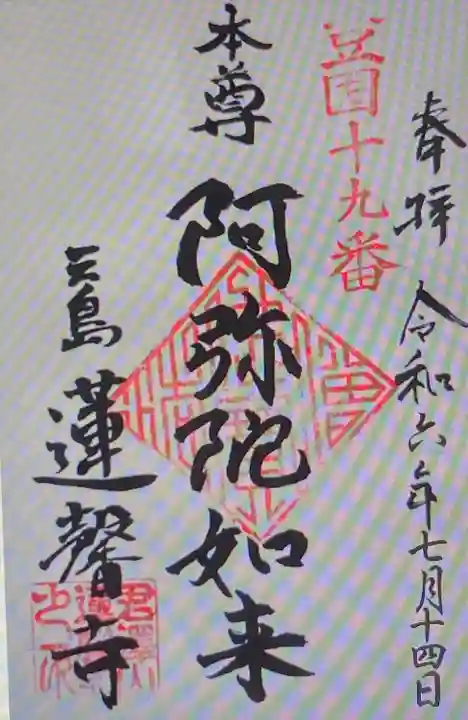 奉拝 令和六年七月十四日
豆国十九番
本尊
阿弥陀如来
三島 蓮馨寺